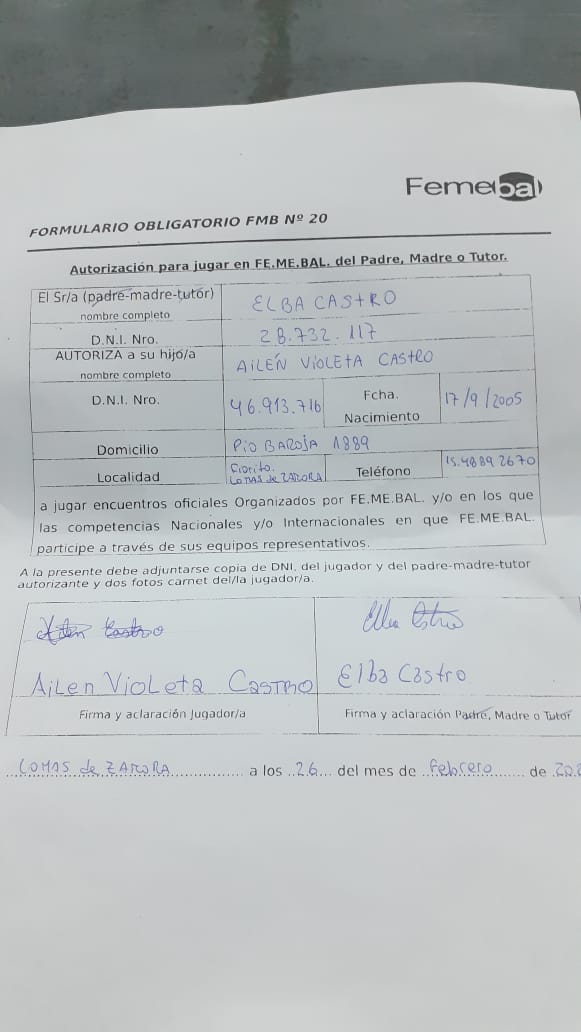 Femebal
FORMULARIO OBLIGATORIO FMB Nº 20
Autorización para jugar en FE.ME.BAL. del Padre, Madre o Tutor.
El Sr/a (padre-madre-tutor)
nombre completo
ELBA CASTRO
D.N.I. Nro.
28.732.117
AUTORIZA a su hijo/a
nombre completo
AiLÉN VioLETA CASTRO
D.N.I. Nro.
46.913.716
Fcha.
Nacimiento
17/9/2005
Domicilio
Pio BAROJA 1889
Localidad
Fiorito.
LOMAS de ZAMORA
Teléfono
15.4889 2670
a jugar encuentros oficiales Organizados por FE.ME.BAL. y/o en los que
las competencias Nacionales y/o Internacionales en que FE.ME.BAL.
participe a través de sus equipos representativos.
A la presente debe adjuntarse copia de DNI. del jugador y del padre-madre-tutor
autorizante y dos fotos carnet del/la jugador/a.
Ailen Castro
Elba Castro
AiLen VioLeta CASTRO
Elba Castro
Firma y aclaración Jugador/a
Firma y aclaración Padre, Madre o Tutor
LOMAS de ZAMORA a los 26 del mes de febrero de 202